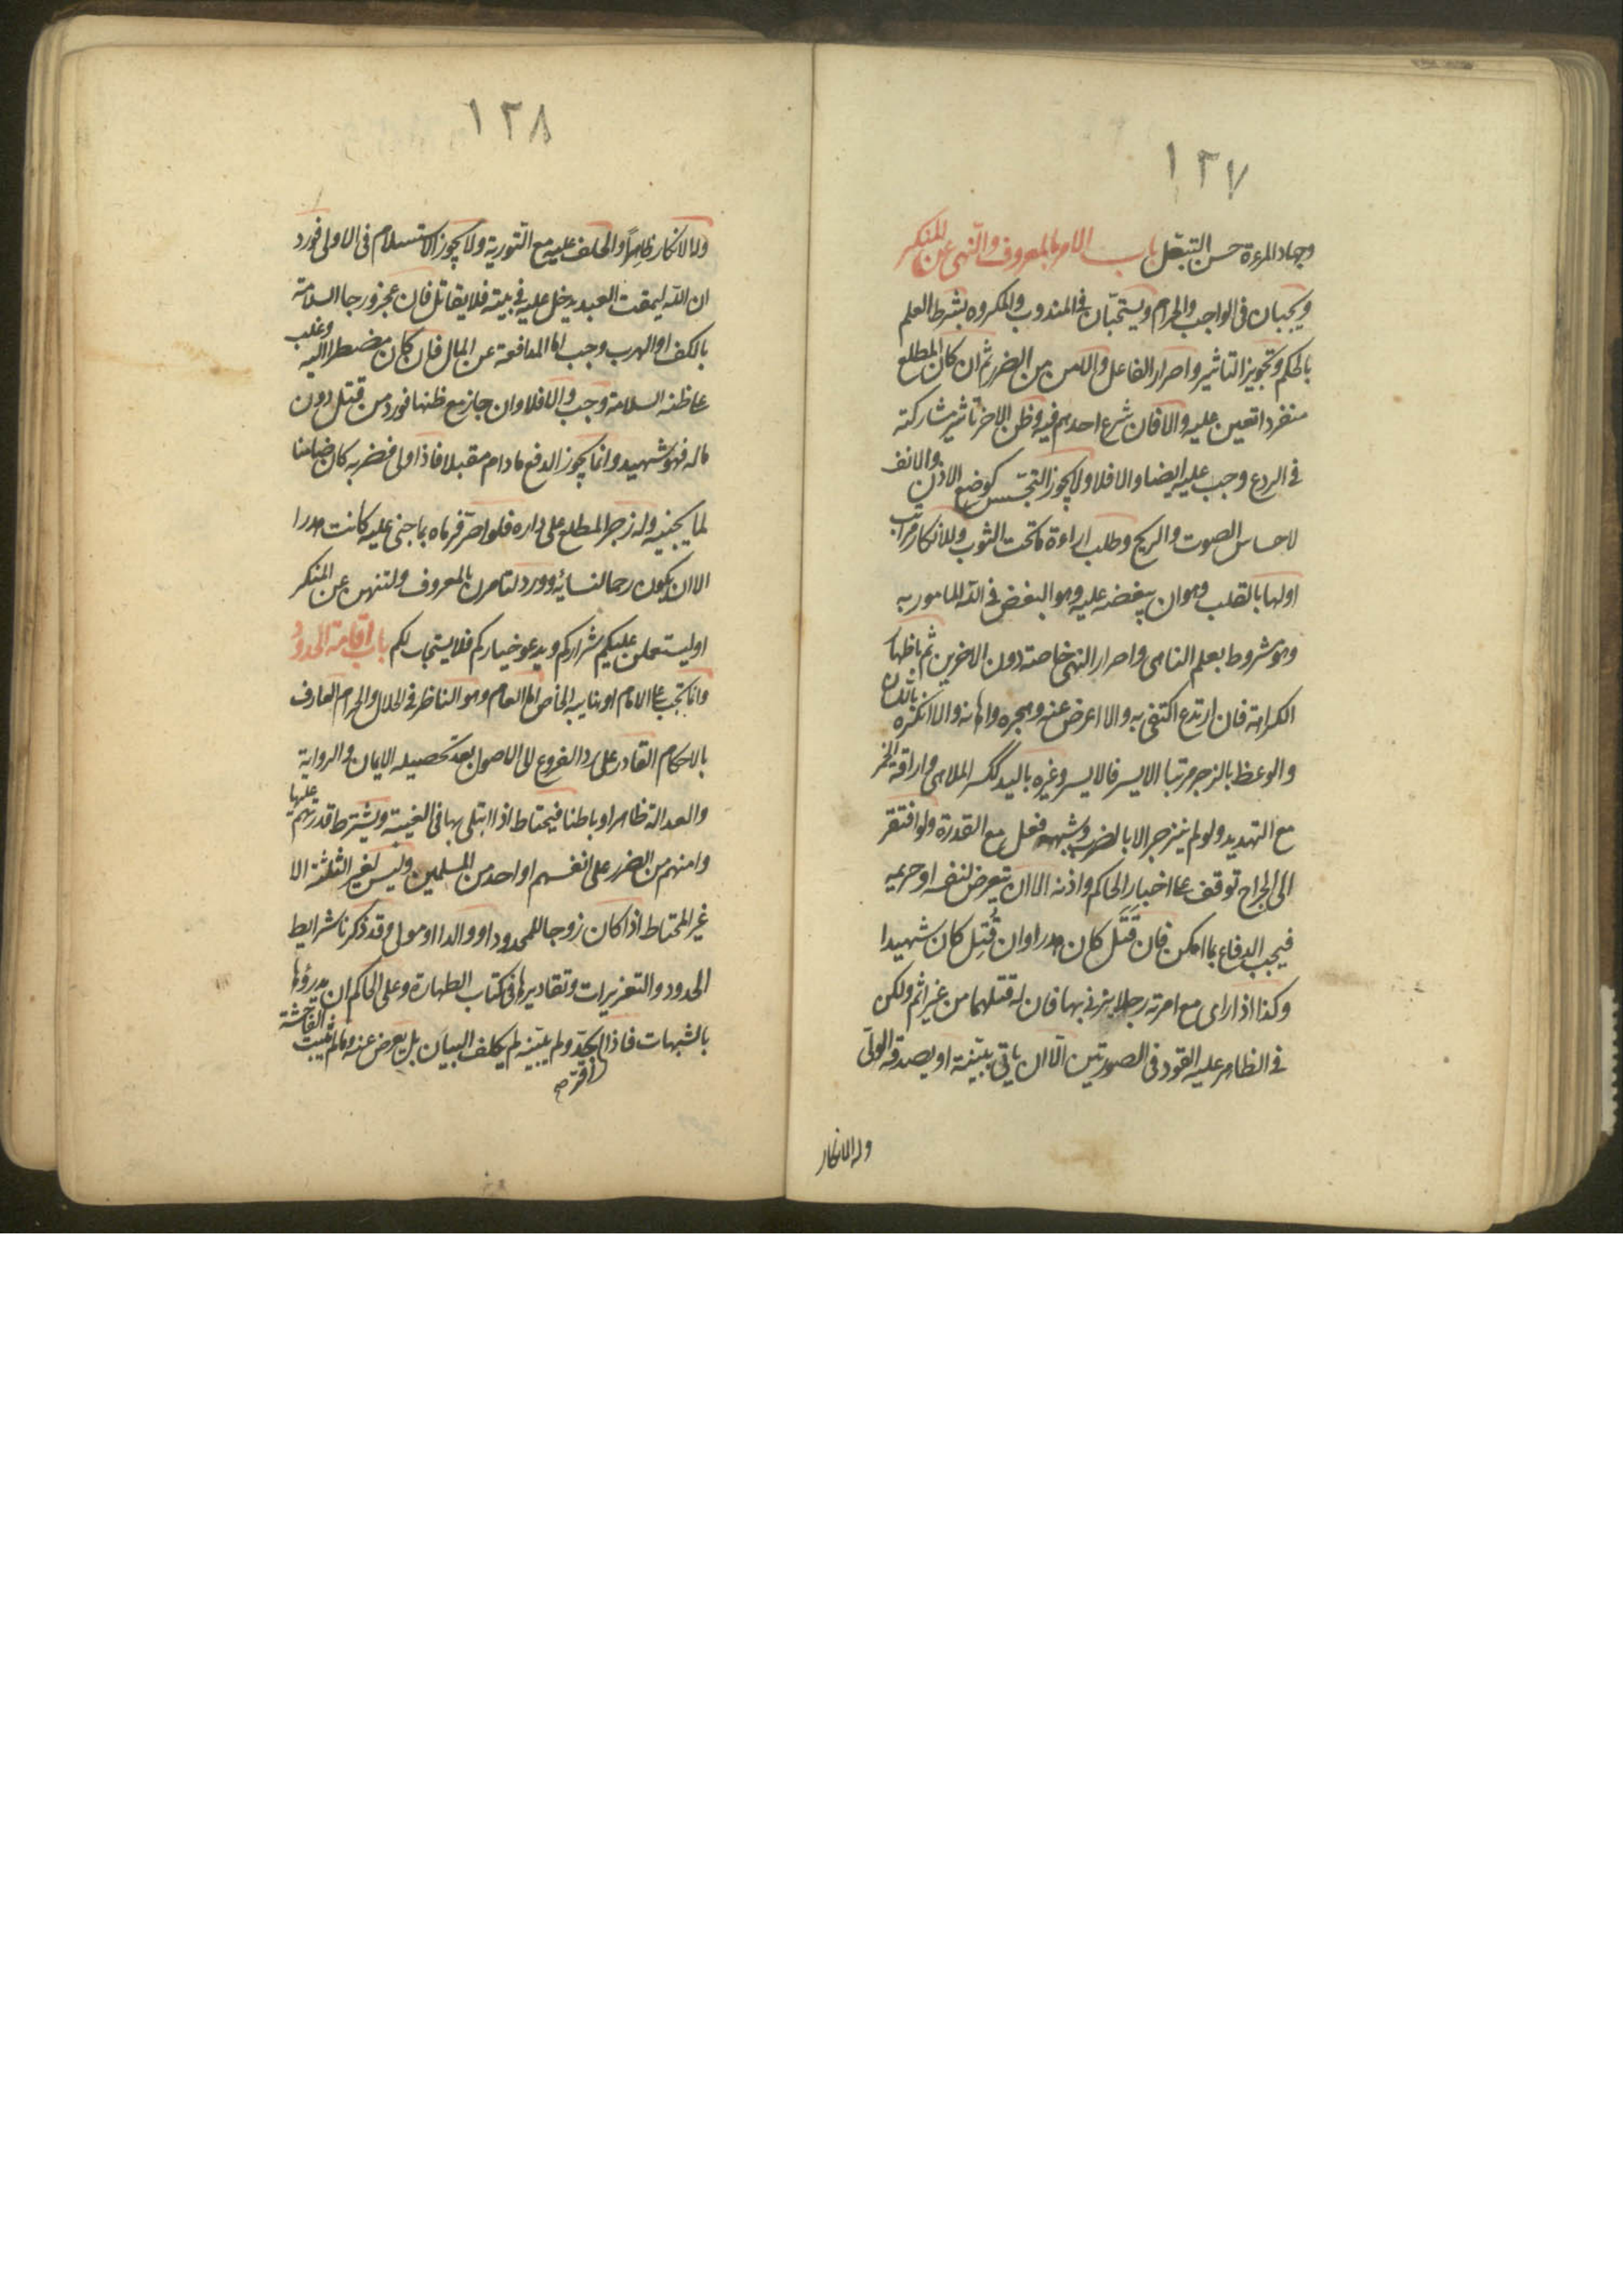 ١٢٧
وجهاد المرءة حسن التبعّل باب الامر بالمعروف والنّهى عن المنكر
ويجبان فى الواجب والحرام ويستحبّان فى المندوب والمكروه بشرط العلم
بالحكم وتجويز التاثير واصرار الفاعل والامن من الضرر ثم ان كان المطلع
منفردا تعين عليه والا فان شرع احدهم فيه وظن الاخر تاثير مشاركته
فى الردع وجب عليه ايضا والا فلا ولا يجوز التجسّس كوضع الاذن والانف
لاحساس الصوت والريح وطلب اراءة ما تحت الثوب وللانكار مراتب
اولها بالقلب وهو ان يبغضه عليه وهو البغض فى الله المامور به
وهو مشروط بعلم الناهى واصرار النهى خاصة دون الاخرين ثم باظهار
الكراهة فان ارتدع اكتفى به والا اعرض عنه وهجره واهانه والا انكره باللسان
والوعظ بالزجر مرتبا الايسر فالايسر وغيره باليد ككسر الملاهى واراقة الخمر
مع التهديد ولو لم ينزجر الا بالضرب وشبهه فعل مع القدرة ولو افتقر
الى الجراح توقف على اخبار الحاكم واذنه الا ان يتعرض لنفسه او حريمه
فيجب الدفاع بما امكن فان قَتَل كان هدرا وان قُتِل كان شهيدا
وكذا اذا راى مع امرته رجلا يزنى بها فان له قتلهما من غير اثم ولكن
فى الظاهر عليه القود فى الصورتين الّا ان ياتى ببيّنة او يصدقه الولىّ
وله الانكار
١٢٨
وله الانكار ظاهراً والحلف عليه مع التورية ولا يجوز الاستسلام فى الاولى فورد
ان الله ليمقت العبد يدخل عليه فى بيته فلا يقاتل فان عجز ورجا السلامة
بالكف او الهرب وجب اما المدافعة عن المال فان كان مضطرا اليه وغلب
على ظنه السلامة وجب والا فلا وان جاز مع ظنها فورد من قتل دون
ماله فهو شهيد وانما يجوز الدفع ما دام مقبلا فاذا ولى فضربه كان ضامنا
لما يجنيه وله زجر المطلع على داره فلو اصرّ فرماه بما جنى عليه كانت هدرا
الا ان يكون رحما لنسائه وورد لتامرن بالمعروف ولتنهن عن المنكر
او ليستعملن عليكم شراركم ويدعو خياركم فلا يستجاب لكم باب اقامة الحدود
وانما تجب على الامام او نايبه الخاص او العام وهو الناظر فى الحلال والحرام العارف
بالاحكام القادر على رد الفروع الى الاصول بعد تحصيله الايمان والرواية
والعدالة ظاهرا وباطنا فيحتاط اذا ابتلى بها فى الغيبة ويشترط قدرتهم عليها
وامنهم من الضرر على انفسهم او احد من المسلمين وليس لغير الثلثة الا
غير المحتاط اذا كان زوجا للمحدود او والدا او مولى وقد ذكرنا شرايط
الحدود والتعزيرات وتقاديرها فى كتاب الطهارة وعلى الحاكم ان يدرؤها
بالشبهات فاذا اقر بحدّ ولم يبيّنه لم يكلف البيان بل يعرض عنه وما لم يثبت الفاحشة